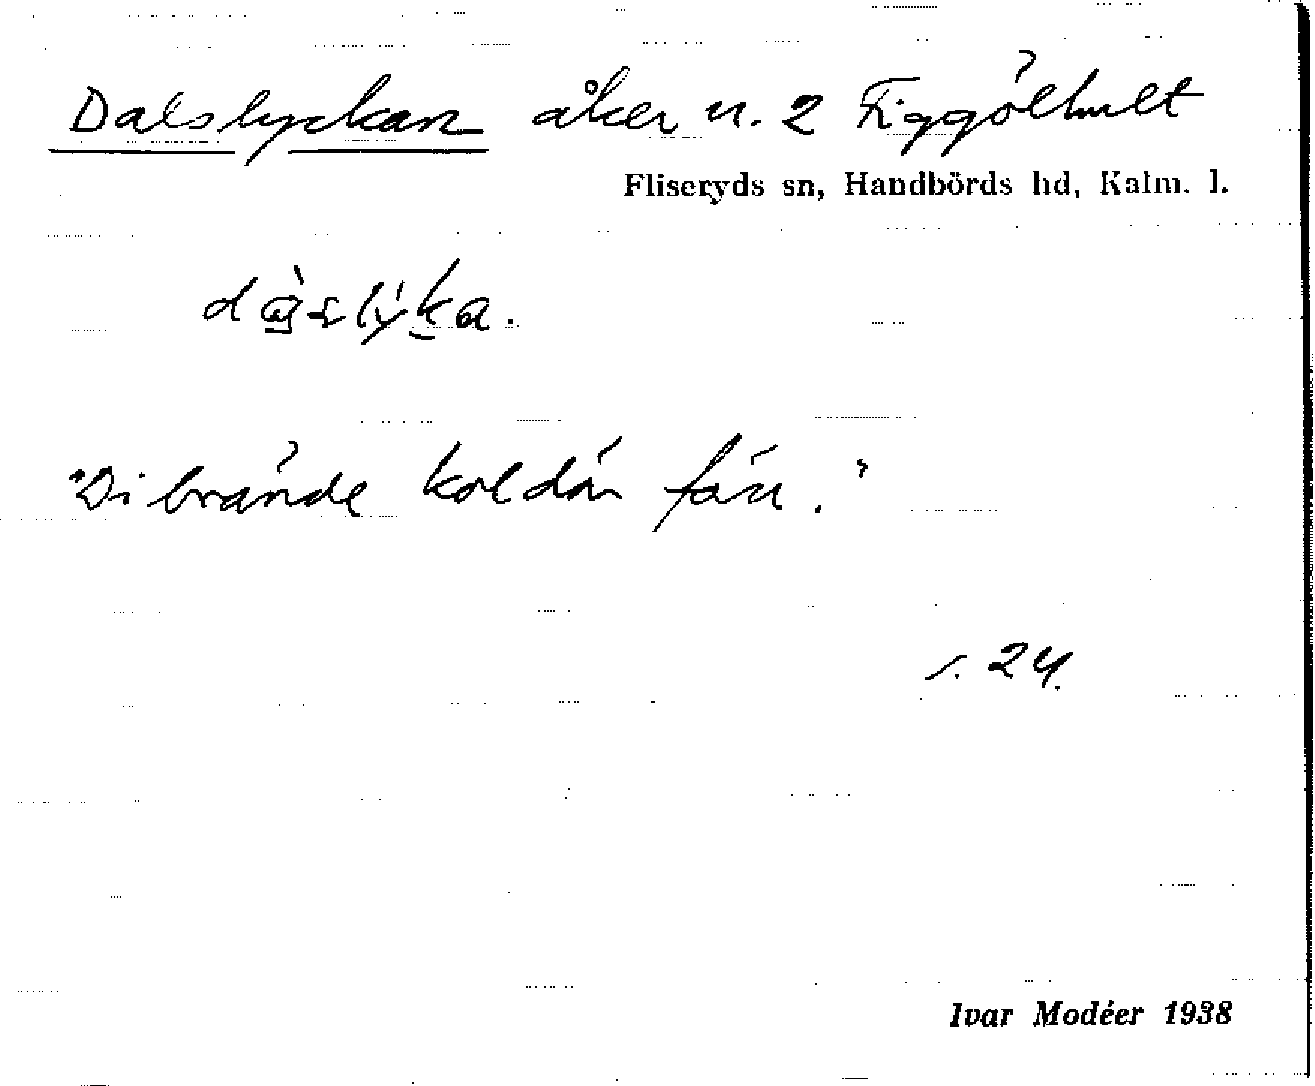 Dalslyckan åker n. 2 Figgölhult
Fliseryds sn, Handbörds hd, Kalm. l.
"Di brände kol där förr."
s. 24.
Ivar Modéer 1938